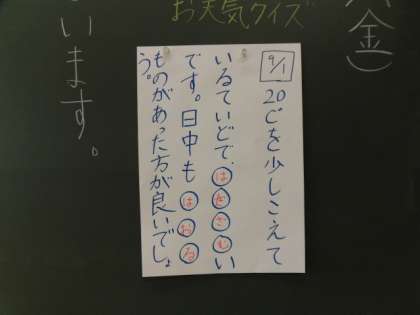 金）
お天気クイズ
9/1
20℃を少しこえて
いるていどで、はださむい
です。日中もはおる
ものがあった方が良いでしょ
う。
います。